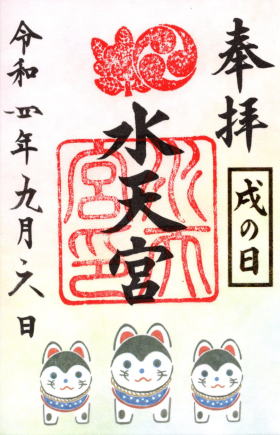 奉拝
戌の日
水天宮
水天
宮印
令和四年九月十六日